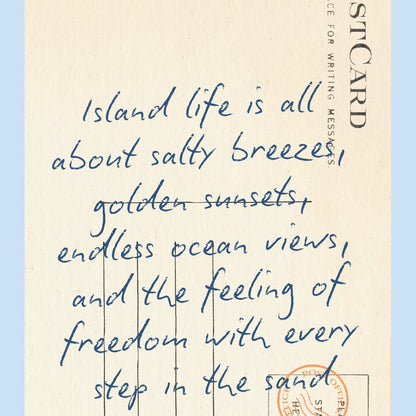 POSTCARD
SPACE FOR WRITING MESSAGES
Island life is all
about salty breezes,
golden sunsets,
endless ocean views,
and the feeling of
freedom with every
step in the sand
POST OFFICE